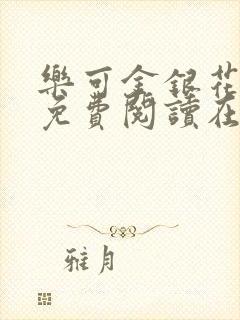 樂可金銀花
免費閱讀在
雅月